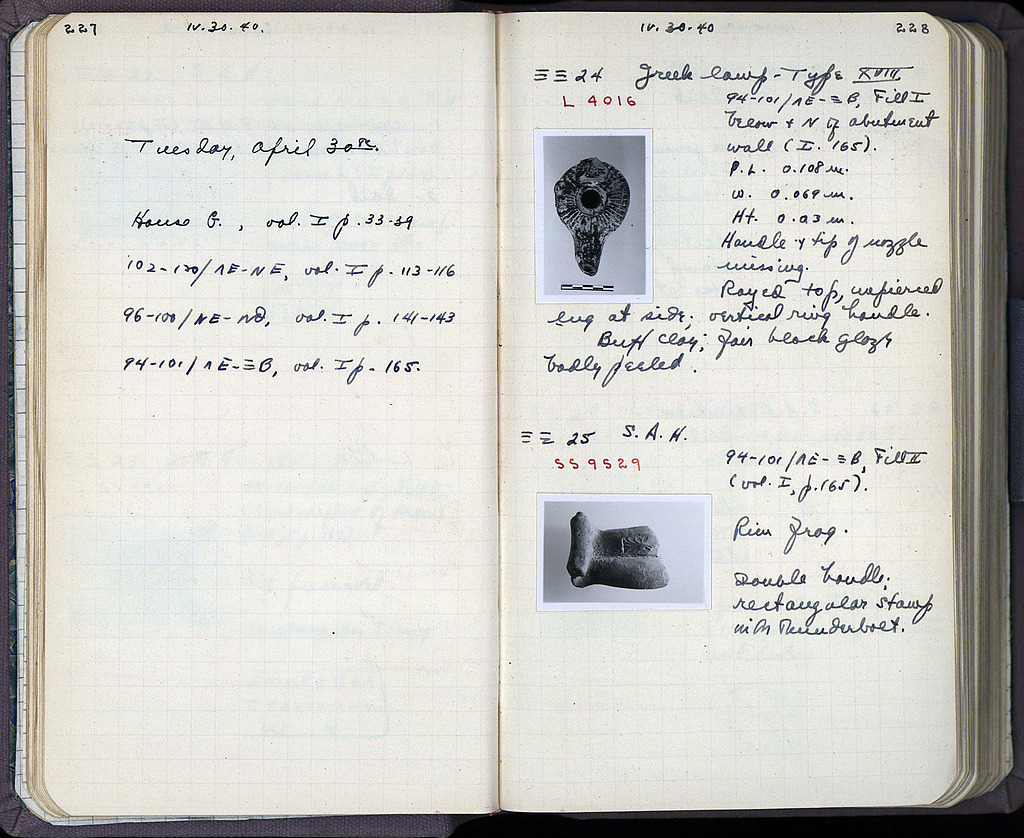 227
IV. 30. 40.
Tuesday, April 30th.
House G., vol. I p. 33-39
102-120/ΛΕ-ΝΕ, vol. I p. 113-116
96-100/ΝΕ-ΝΘ, vol. I p. 141-143
94-101/ΛΕ-ΞΒ, vol. I p. 165.
IV. 30. 40
228
ΞΞ 24 Greek lamp - Type XVIII
L 4016
94-101/ΛΕ-ΞΒ, Fill I
below & N of abutment
wall (I. 165).
P.L. 0.108 m.
W. 0.069 m.
Ht. 0.03 m.
Handle & tip of nozzle
missing.
Rayed top, unpierced
lug at side; vertical ring handle.
Buff clay; fair black glaze
badly peeled.
ΞΞ 25 S.A.H.
SS 9529
94-101/ΛΕ-ΞΒ, Fill II
(vol. I, p. 165).
Rim frag.
Double handle;
rectangular stamp
with Thunderbolt.